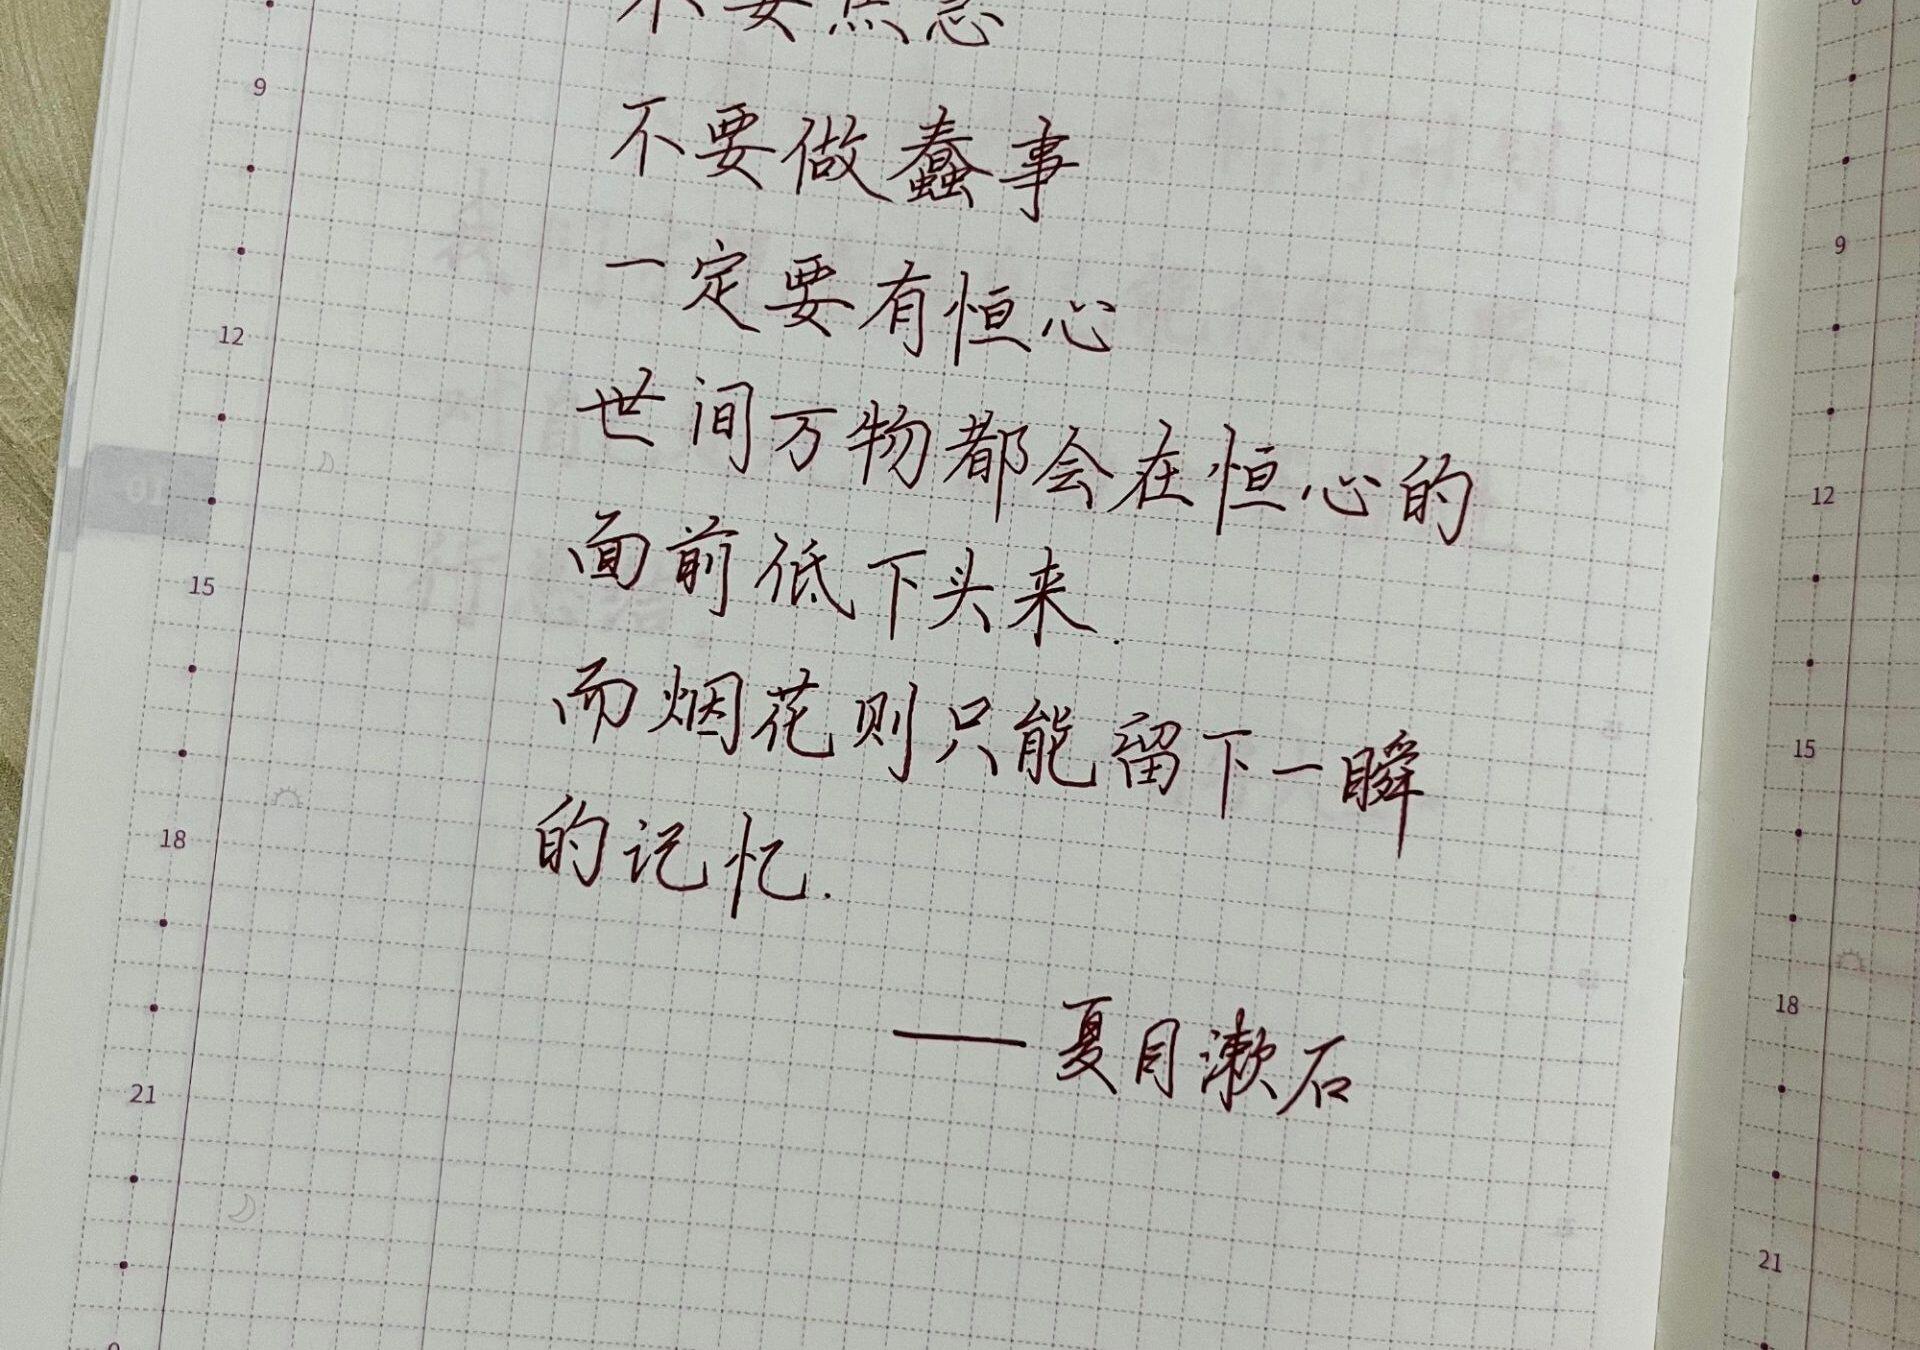 不要焦急
不要做蠢事
一定要有恒心
世间万物都会在恒心的
面前低下头来.
而烟花则只能留下一瞬
的记忆.
——夏目漱石
9
12
15
18
21
9
12
15
18
21